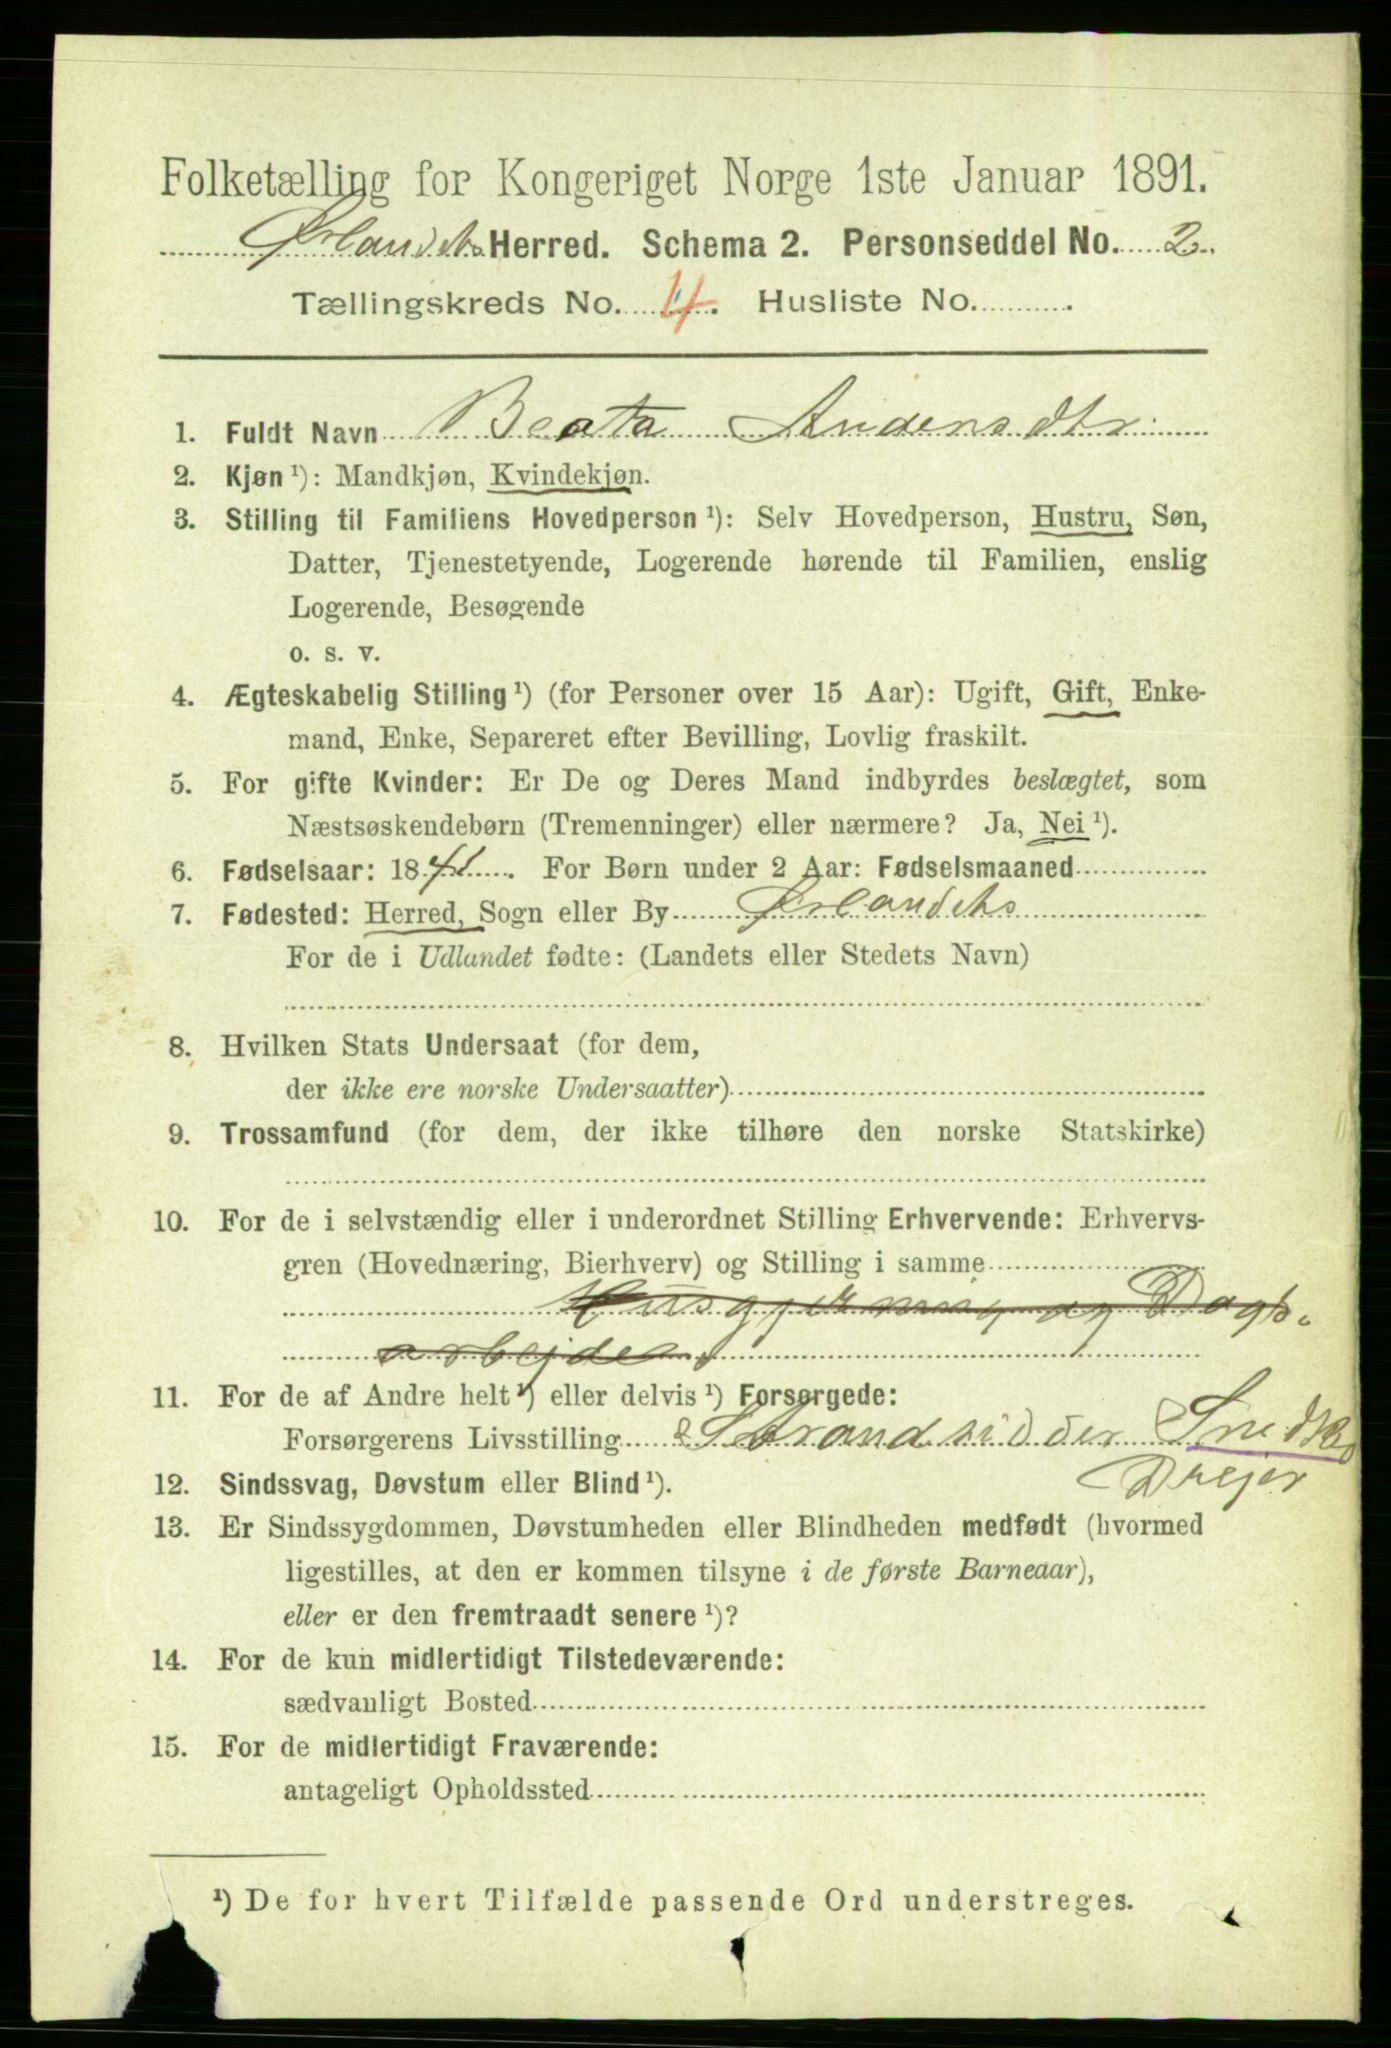 Folketælling for Kongeriget Norge 1ste Januar 1891.
Ørlandets Herred. Schema 2. Personseddel No. 2.
Tællingskreds No. 4. Husliste No.
1. Fuldt Navn Beata Andersdtr.
2. Kjøn ¹): Mandkjøn, Kvindekjøn.
3. Stilling til Familiens Hovedperson ¹): Selv Hovedperson, Hustru, Søn,
Datter, Tjenestetyende, Logerende hørende til Familien, enslig
Logerende, Besøgende
o. s. v.
4. Ægteskabelig Stilling ¹) (for Personer over 15 Aar): Ugift, Gift, Enke-
mand, Enke, Separeret efter Bevilling, Lovlig fraskilt.
5. For gifte Kvinder: Er De og Deres Mand indbyrdes beslægtet, som
Næstsøskendebørn (Tremenninger) eller nærmere? Ja, Nei ¹).
6. Fødselsaar: 1841. For Børn under 2 Aar: Fødselsmaaned
7. Fødested: Herred, Sogn eller By Ørlandets
For de i Udlandet fødte: (Landets eller Stedets Navn)
8. Hvilken Stats Undersaat (for dem,
der ikke ere norske Undersaatter)
9. Trossamfund (for dem, der ikke tilhøre den norske Statskirke)
10. For de i selvstændig eller i underordnet Stilling Erhvervende: Erhvervs-
gren (Hovednæring, Bierhverv) og Stilling i samme
Husgjerning og Dags-
arbejde
11. For de af Andre helt ¹) eller delvis ¹) Forsørgede:
Forsørgerens Livsstilling Strandsidder Snedker
Drejer
12. Sindssvag, Døvstum eller Blind ¹).
13. Er Sindssygdommen, Døvstumheden eller Blindheden medfødt (hvormed
ligestilles, at den er kommen tilsyne i de første Barneaar),
eller er den fremtraadt senere ¹)?
14. For de kun midlertidigt Tilstedeværende:
sædvanligt Bosted
15. For de midlertidigt Fraværende:
antageligt Opholdssted
¹) De for hvert Tilfælde passende Ord understreges.